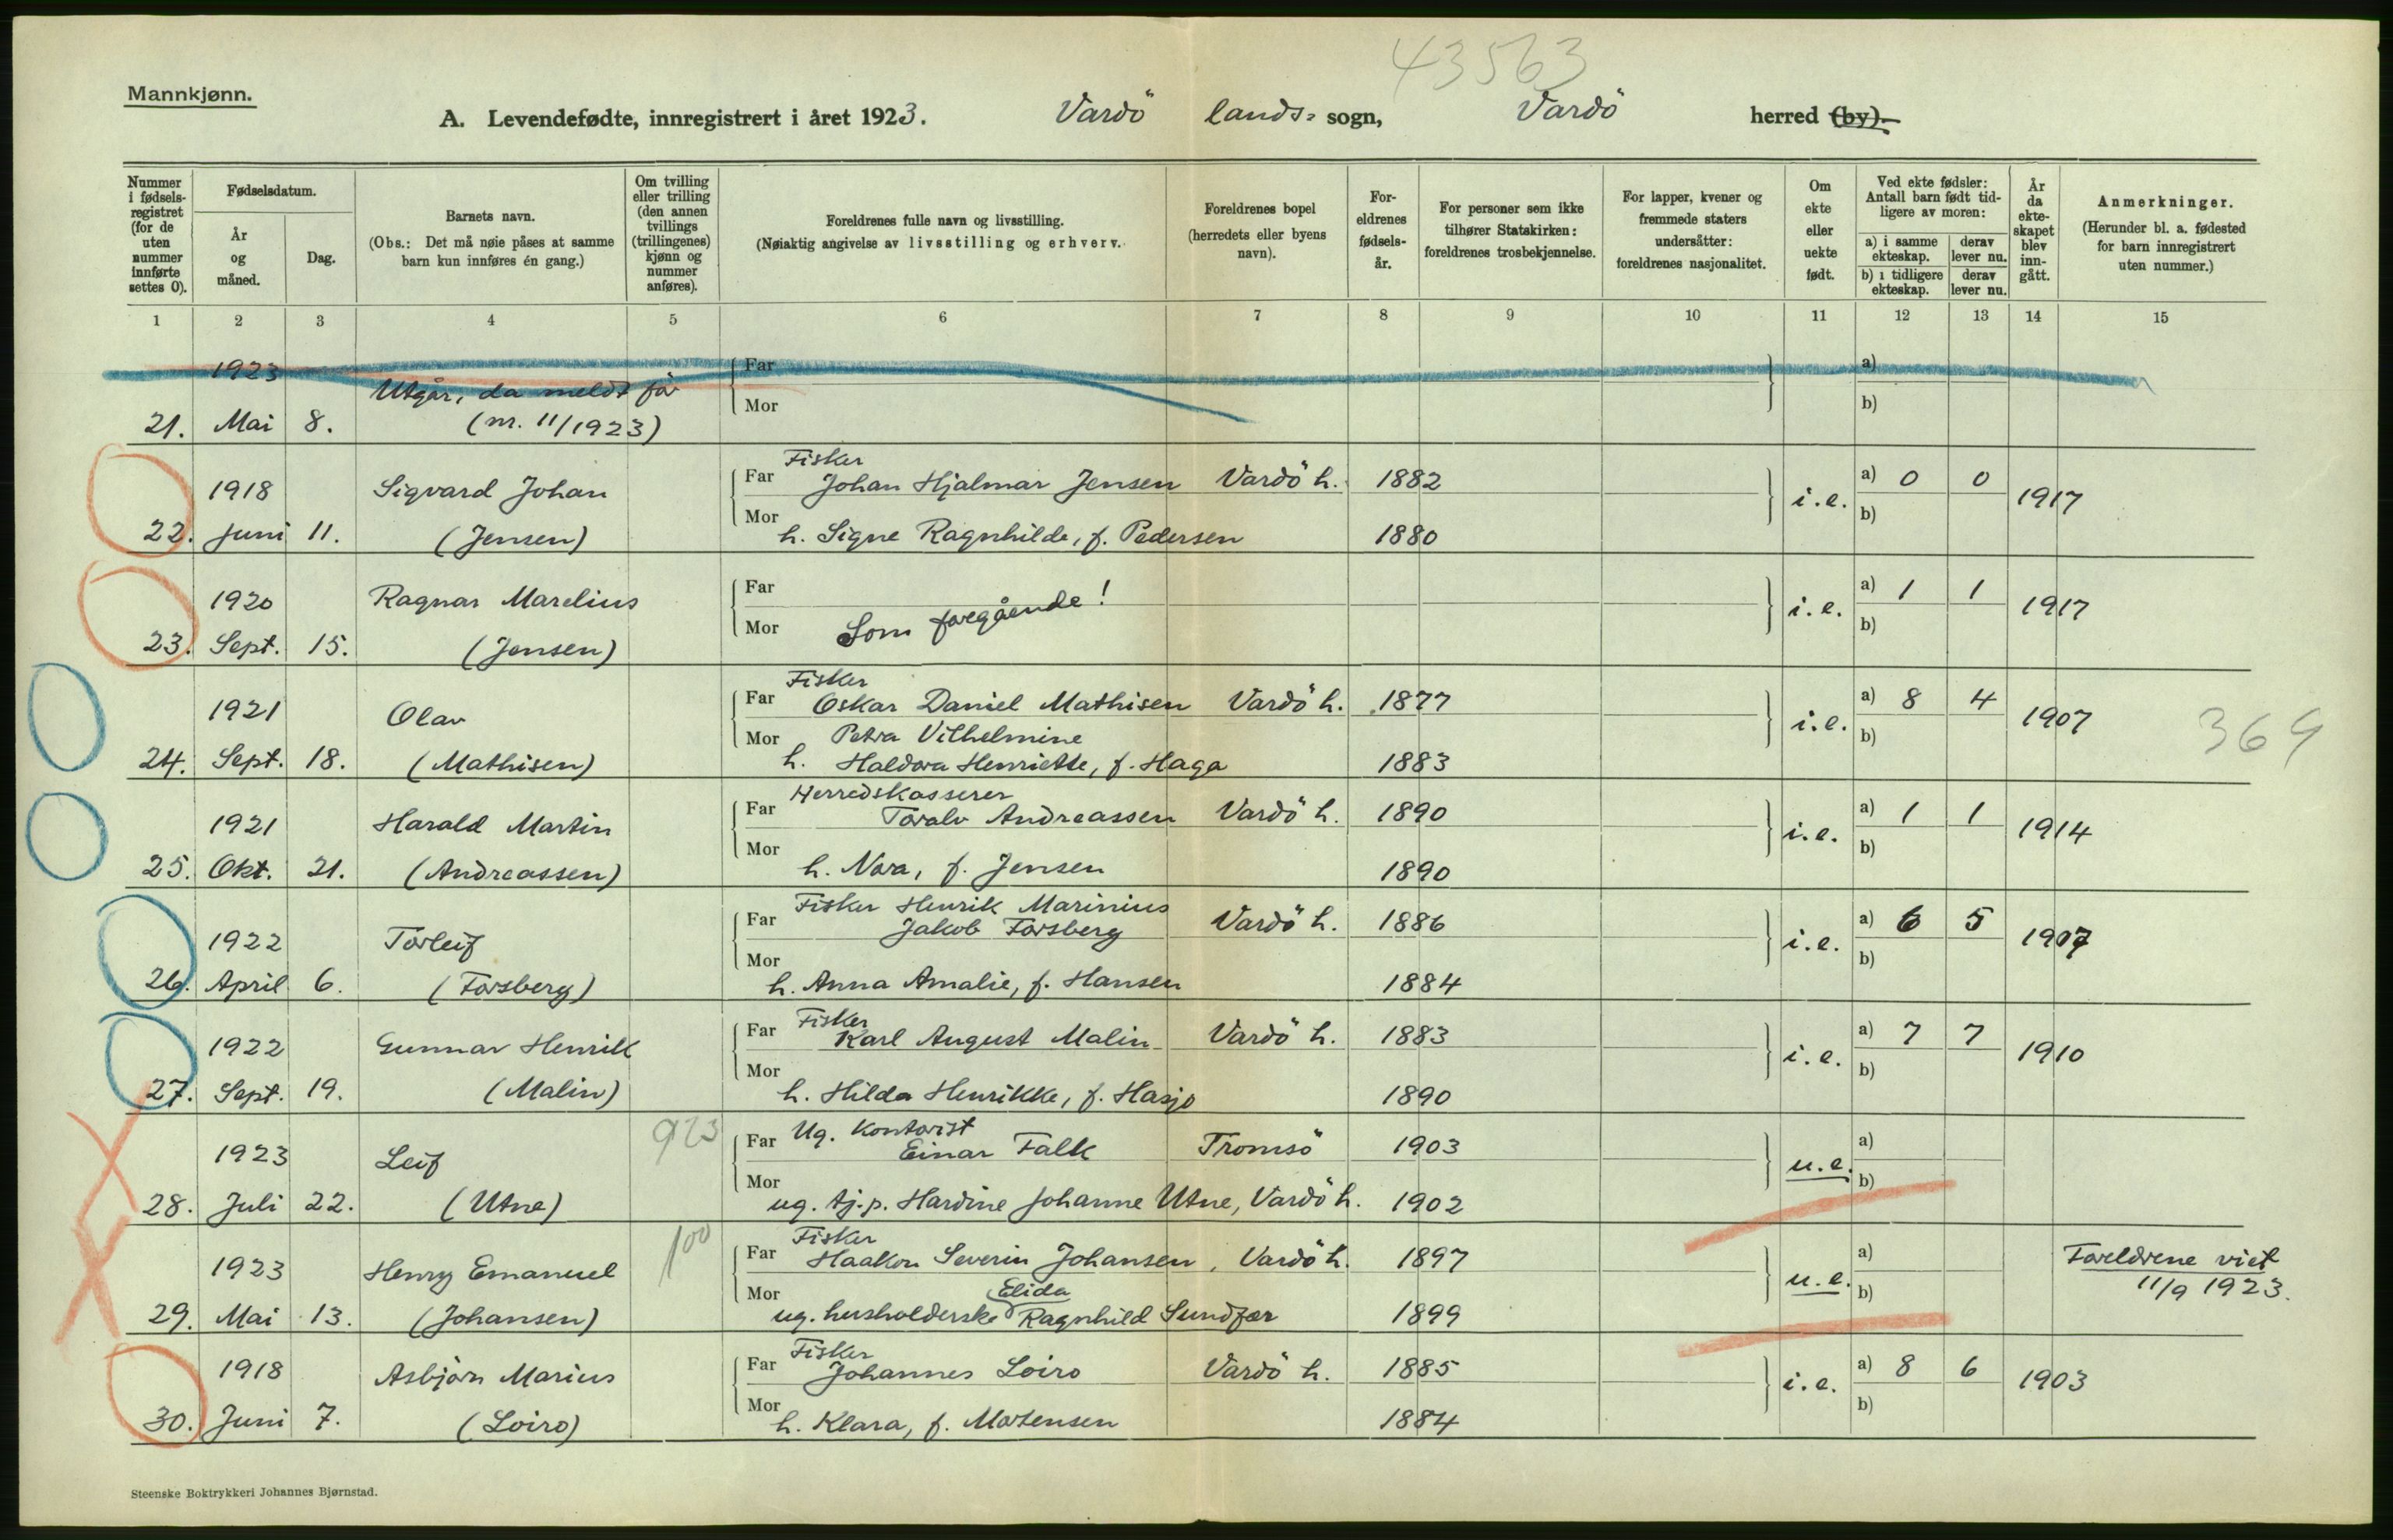 43563
Mannkjønn.
A. Levendefødte, innregistrert i året 1923. Vardö lands- sogn, Vardö herred (by).
Nummer i fødsels-registret (for de uten nummer innførte settes 0).
Fødselsdatum.
År og måned.
Dag.
Barnets navn.
(Obs.: Det må nøie påses at samme barn kun innføres én gang.)
Om tvilling eller trilling (den annen tvillings (trillingenes) kjønn og nummer anføres).
Foreldrenes fulle navn og livsstilling.
(Nøiaktig angivelse av livsstilling og erhverv.
Foreldrenes bopel (herredets eller byens navn).
For-eldrenes fødsels-år.
For personer som ikke tilhører Statskirken: foreldrenes trosbekjennelse.
For lapper, kvener og fremmede staters undersåtter: foreldrenes nasjonalitet.
Om ekte eller uekte født.
Ved ekte fødsler: Antall barn født tid-ligere av moren:
a) i samme ekteskap. derav lever nu.
b) i tidligere ekteskap. derav lever nu.
År da ekte-skapet blev inn-gått.
Anmerkninger.
(Herunder bl. a. fødested for barn innregistrert uten nummer.)
1 2 3 4 5 6 7 8 9 10 11 12 13 14 15
1923 Utgår, da meldt før Far a)
21. Mai 8. (nr. 11/1923) Mor b)
Fisker
1918 Sigvard Johan Far Johan Hjalmar Jensen Vardö h. 1882 i.e. a) 0 0 1917
22. Juni 11. (Jensen) Mor h. Signe Ragnhilde, f. Pedersen 1880 b)
1920 Ragnar Marelius Far Som foregående! i.e. a) 1 1 1917
23. Sept. 15. (Jensen) Mor b)
Fisker
1921 Olav Far Oskar Daniel Mathisen Vardö h. 1877 i.e. a) 8 4 1907 369
Mor Petra Vilhelmine b)
24. Sept. 18. (Mathisen) h. Haldora Henriette, f. Haga 1883
Herredskasserer
1921 Harald Martin Far Toralv Andreassen Vardö h. 1890 i.e. a) 1 1 1914
25. Okt. 21. (Andreassen) Mor h. Nora, f. Jensen 1890 b)
Fisker Henrik Marinius
1922 Torleif Far Jakob Forsberg Vardö h. 1886 i.e. a) 6 5 1907
26. April 6. (Forsberg) Mor h. Anna Amalie, f. Hansen 1884 b)
Fisker
1922 Gunnar Henrik Far Karl August Malin Vardö h. 1883 i.e. a) 7 7 1910
27. Sept. 19. (Malin) Mor h. Hilda Henrikke, f. Hasjo 1890 b)
923 Ug. Kontorist
1923 Leif Far Einar Falk Tromsö 1903 u.e. a)
28. Juli 22. (Utne) Mor ug. tj.p. Hardine Johanne Utne, Vardö h. 1902 b)
100 Fisker
1923 Henry Emanuel Far Haakon Severin Johansen, Vardö h. 1897 u.e. a) Foreldrene viet
Mor Elida b) 11/9 1923.
29. Mai 13. (Johansen) ug. husholderske Ragnhild Sundfær 1899
Fisker
1918 Asbjörn Marius Far Johannes Loiro Vardö h. 1885 i.e. a) 8 6 1903
30. Juni 7. (Loiro) Mor h. Klara, f. Mortensen 1884 b)
Steenske Boktrykkeri Johannes Bjørnstad.